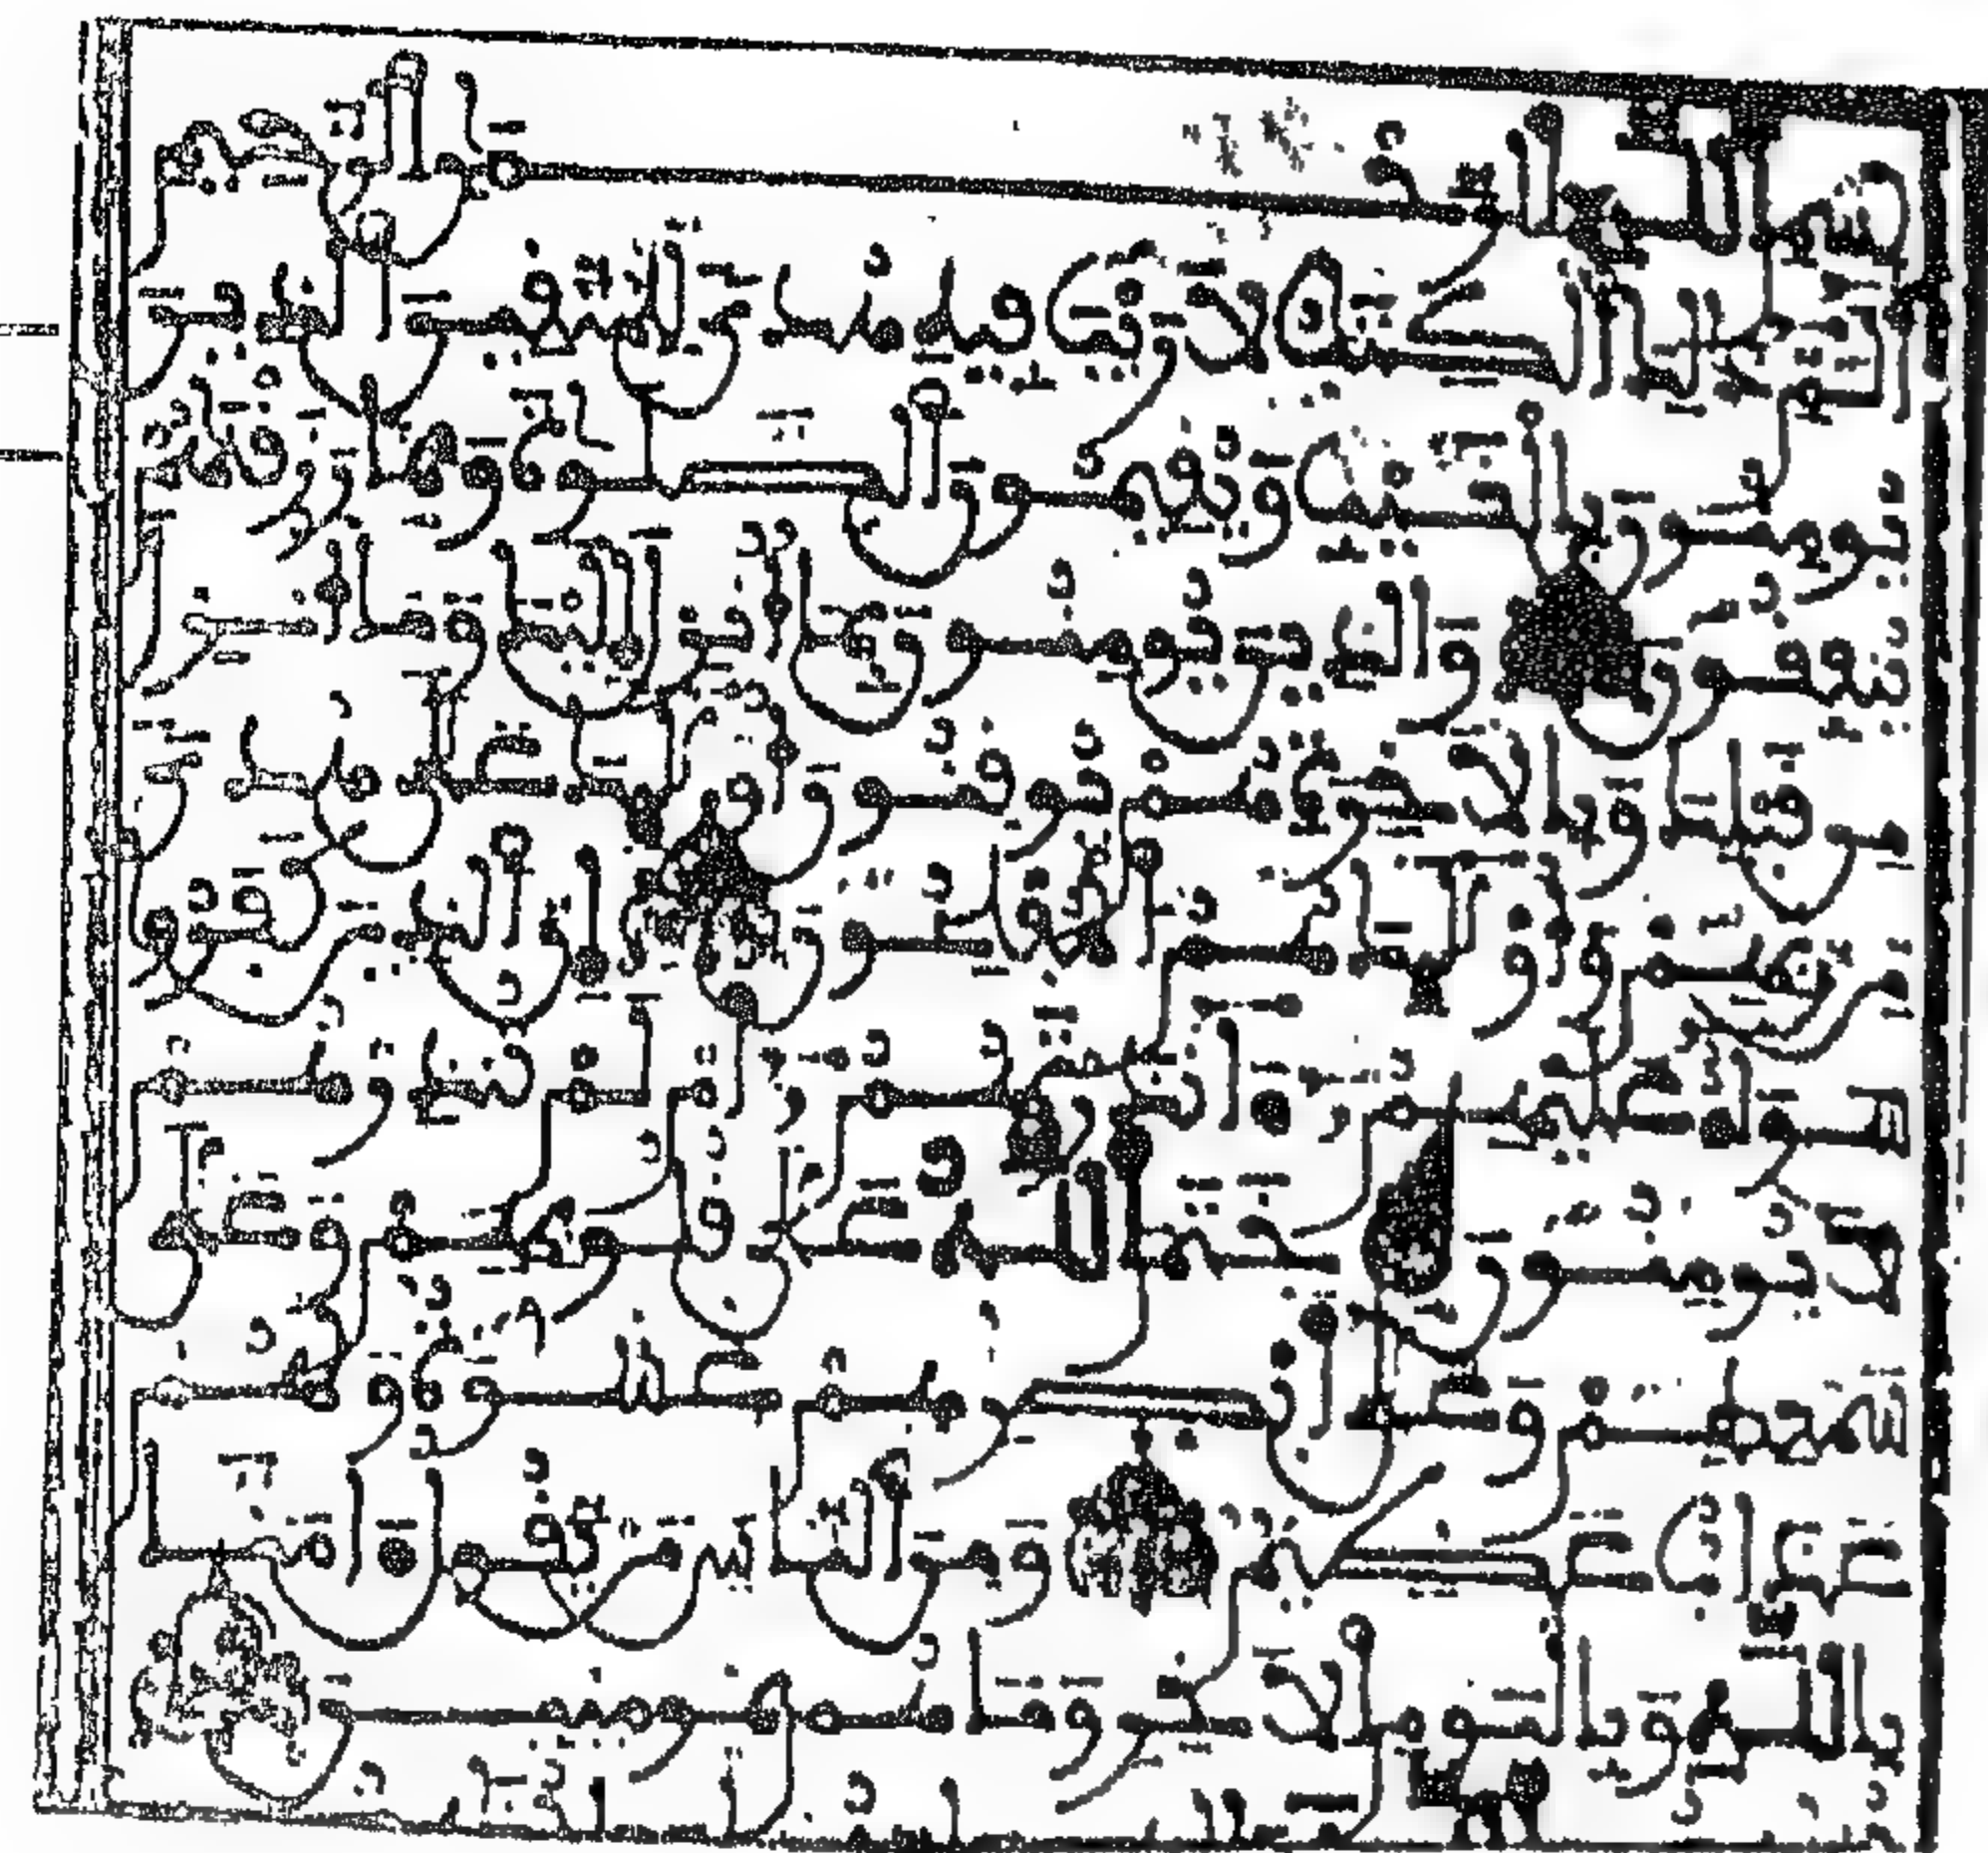 بسم الله الرحمن الرحيم
الم ذلك الكتب لا ريب فيه هدى للمتقين الذين
يومنون بالغيب ويقيمون الصلوة ومما رزقنهم
ينفقون والذين يومنون بما أنزل إليك وما أنزل
من قبلك وبالاخرة هم يوقنون أولئك على هدى من
ربهم وأولئك هم المفلحون إن الذين كفروا
سواء عليهم ءانذرتهم أم لم تنذرهم
لا يومنون ختم الله على قلوبهم وعلى
سمعهم وعلى أبصرهم غشوة ولهم
عذاب عظيم ومن الناس من يقول ءامنا
بالله وباليوم الاخر وما هم بمومنين